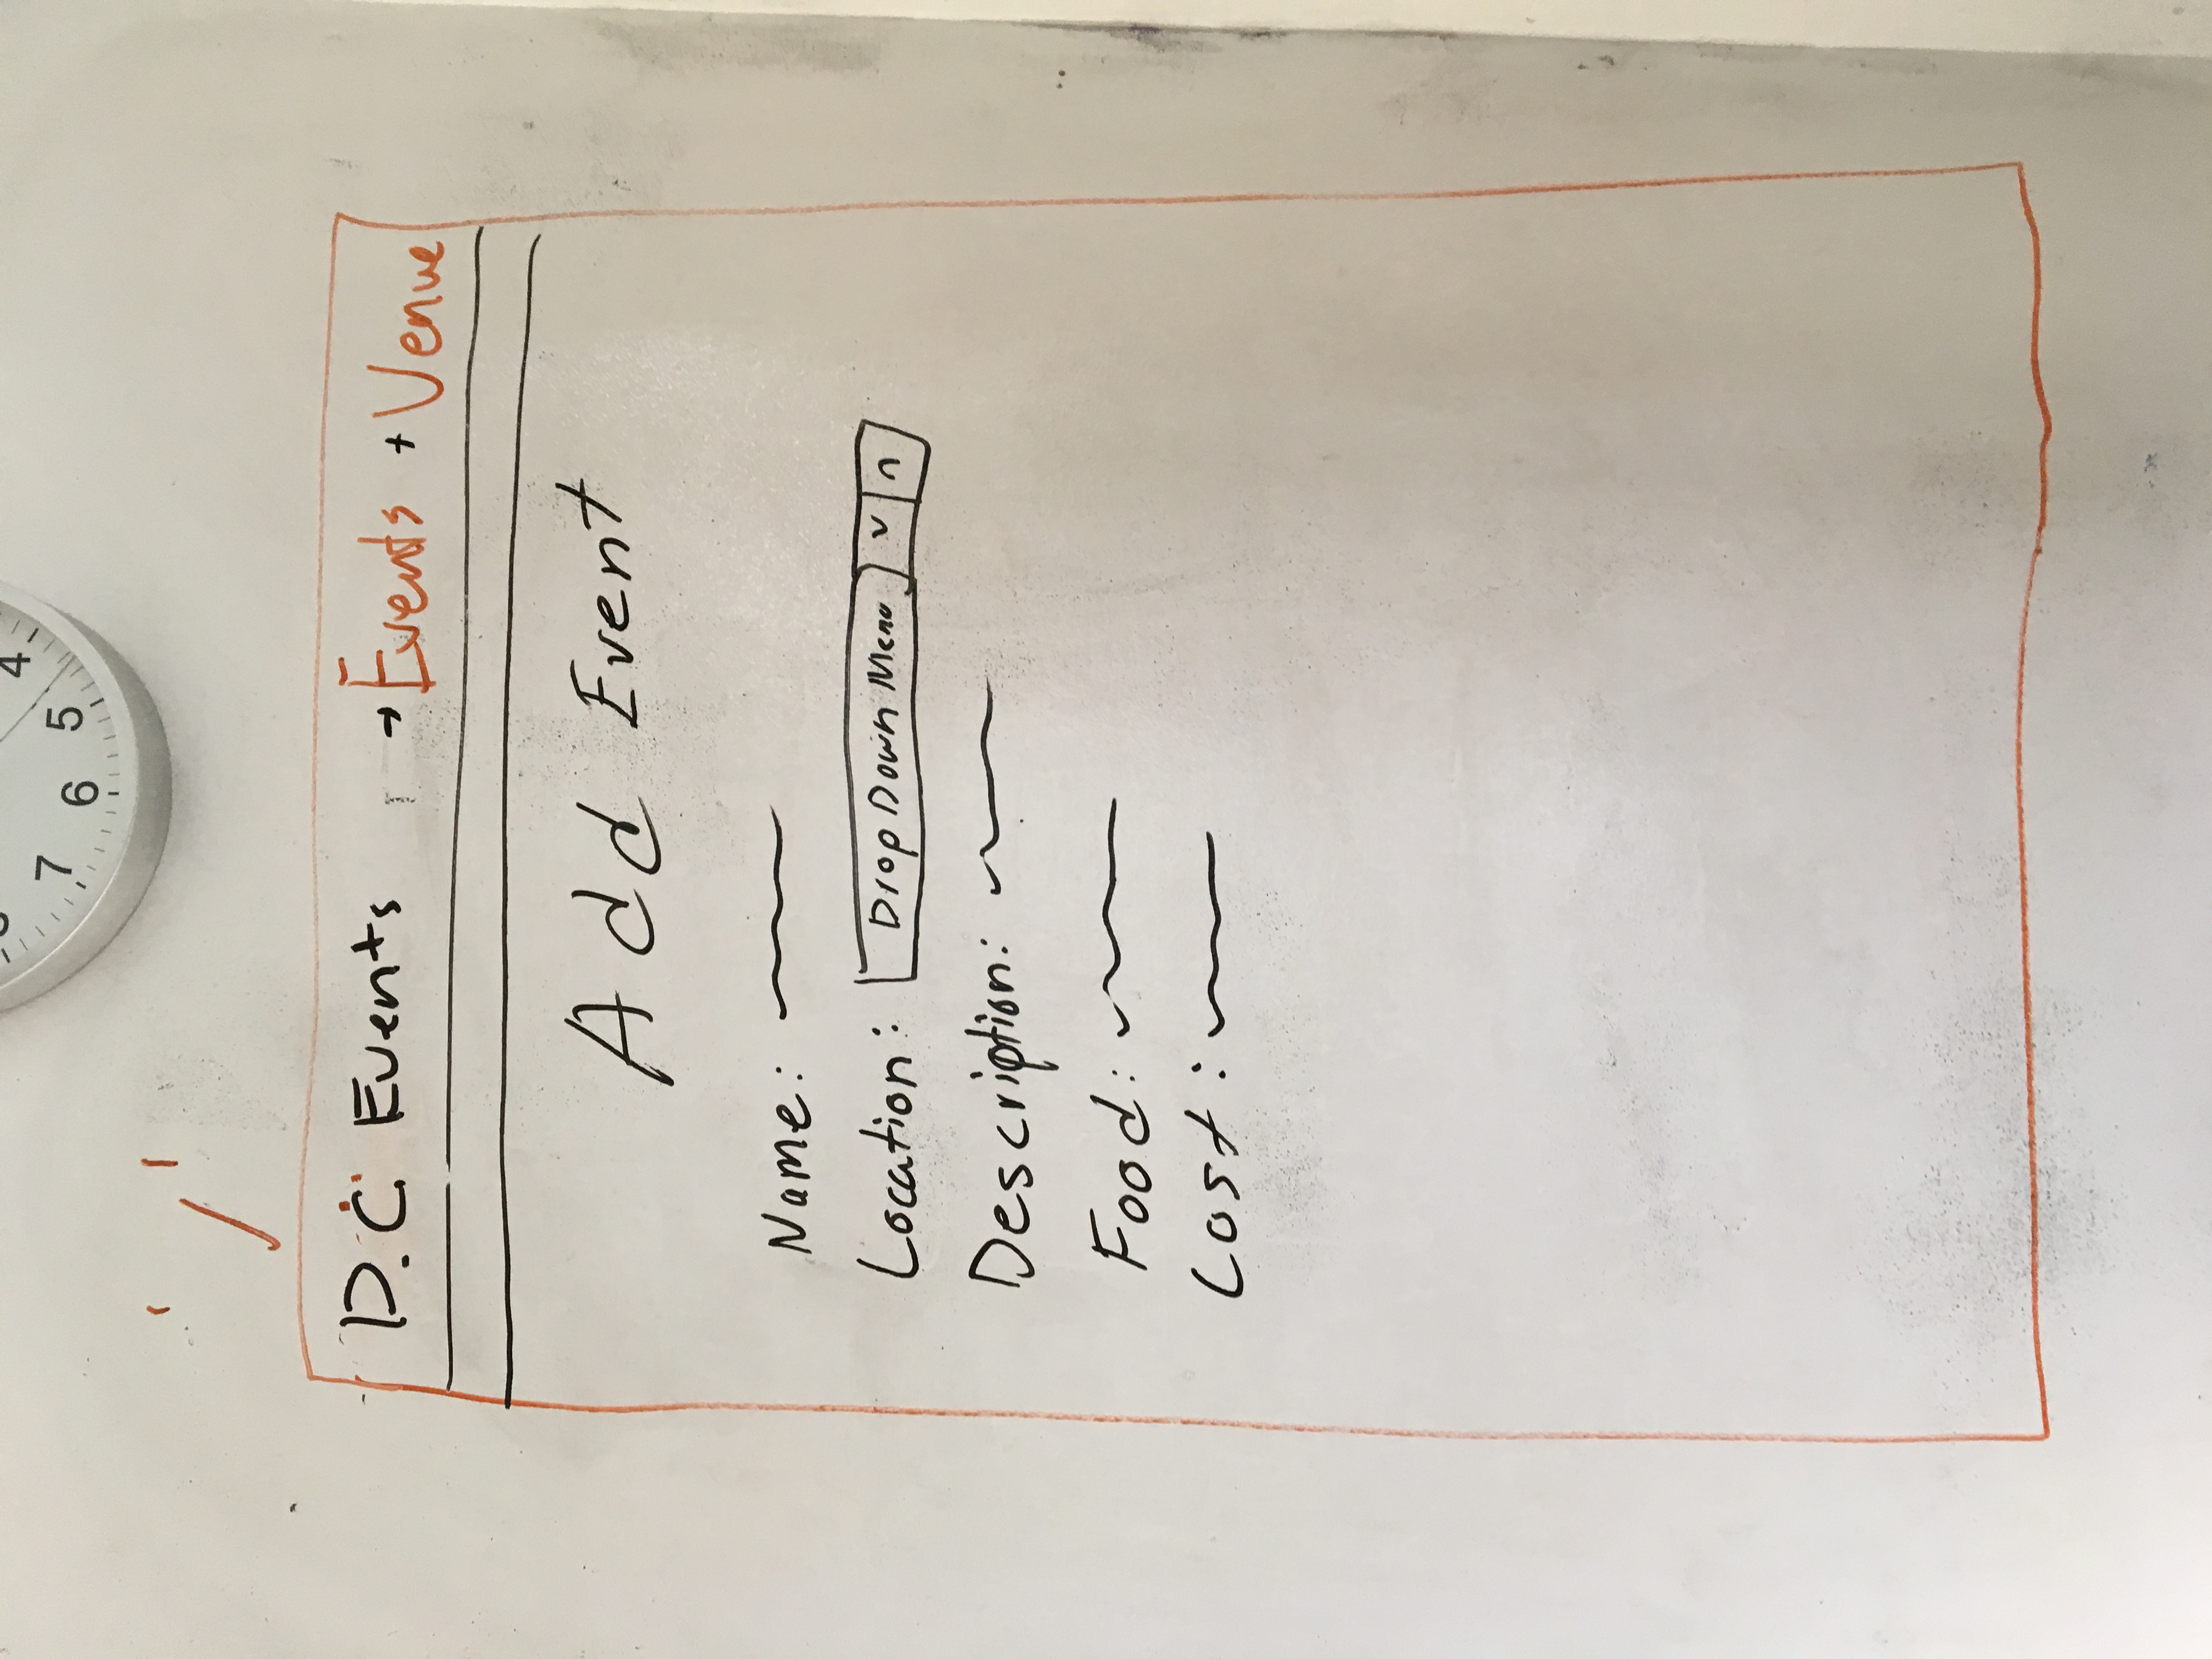 7 6 5 4
' / '
D.C Events + Events + Venue
Add Event
Name:
Location: Drop Down Menu v n
Description:
Food:
Cost: